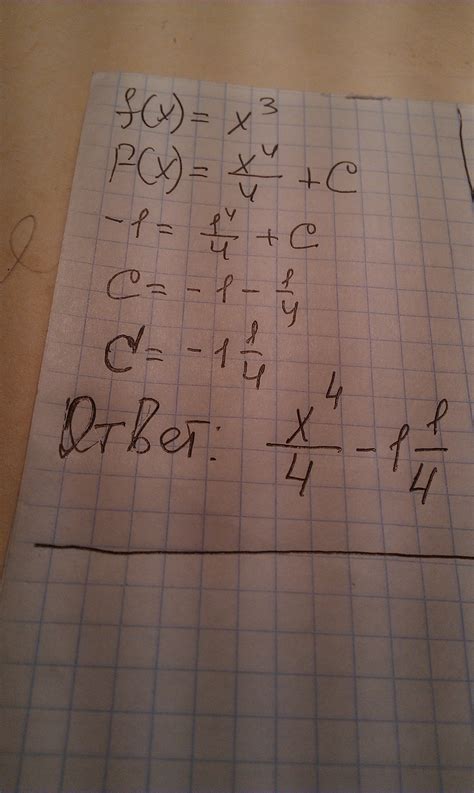 f(x) = x³
F(x) = x⁴/4 + C
-1 = 1⁴/4 + C
C = -1 - 1/4
C = -1 1/4
Ответ: x⁴/4 - 1 1/4